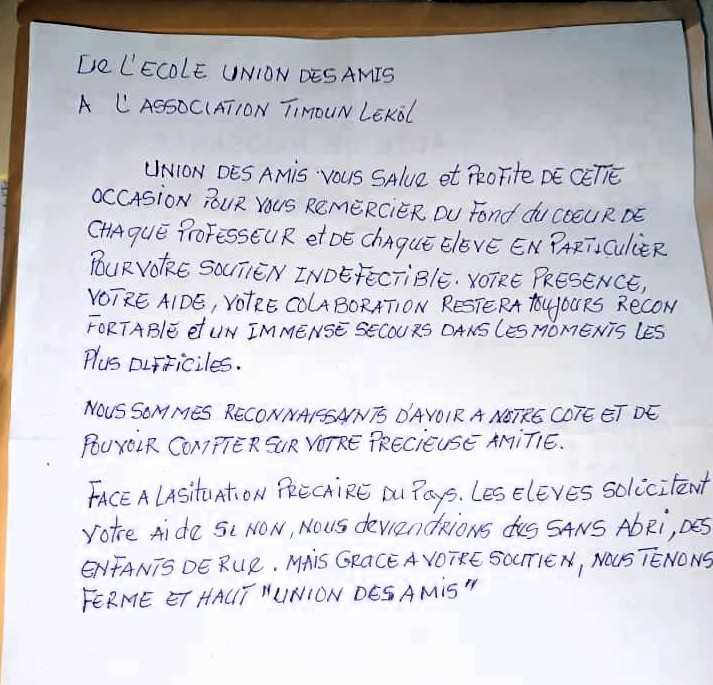 De L'ECOLE UNION DES AMIS
A L'ASSOCIATION TIMOUN LEKÒL
UNION DES AMIS VOUS SALUE et PROFITE DE CETTE
OCCASION POUR VOUS REMERCIER DU Fond du COEUR DE
CHAQUE PROFESSEUR et DE chAQUE ELEVE EN PARTICULIER
POUR VOTRE SOUTIEN INDEFECTIBLE. VOTRE PRESENCE,
VOTRE AIDE, VOTRE COLABORATION RESTERA toujours RECON
FORTABLE et UN IMMENSE SECOURS DANS LES MOMENTS LES
Plus DIFFICILES.
NOUS SOMMES RECONNAISSAINTS D'AVOIR A NOTRE COTE ET DE
POUVOIR COMPTER SUR VOTRE PRECIEUSE AMITIE.
FACE A LA SITUATION PRECAIRE DU PAYS. LES ELEVES SOLICITENT
Votre Aide SI NON, NOUS deviendRIONS des SANS ABRI, DES
ENFANTS DE RUE. MAIS GRACE A VOTRE SOUTIEN, NOUS TENONS
FERME ET HAUT "UNION DES AMIS"